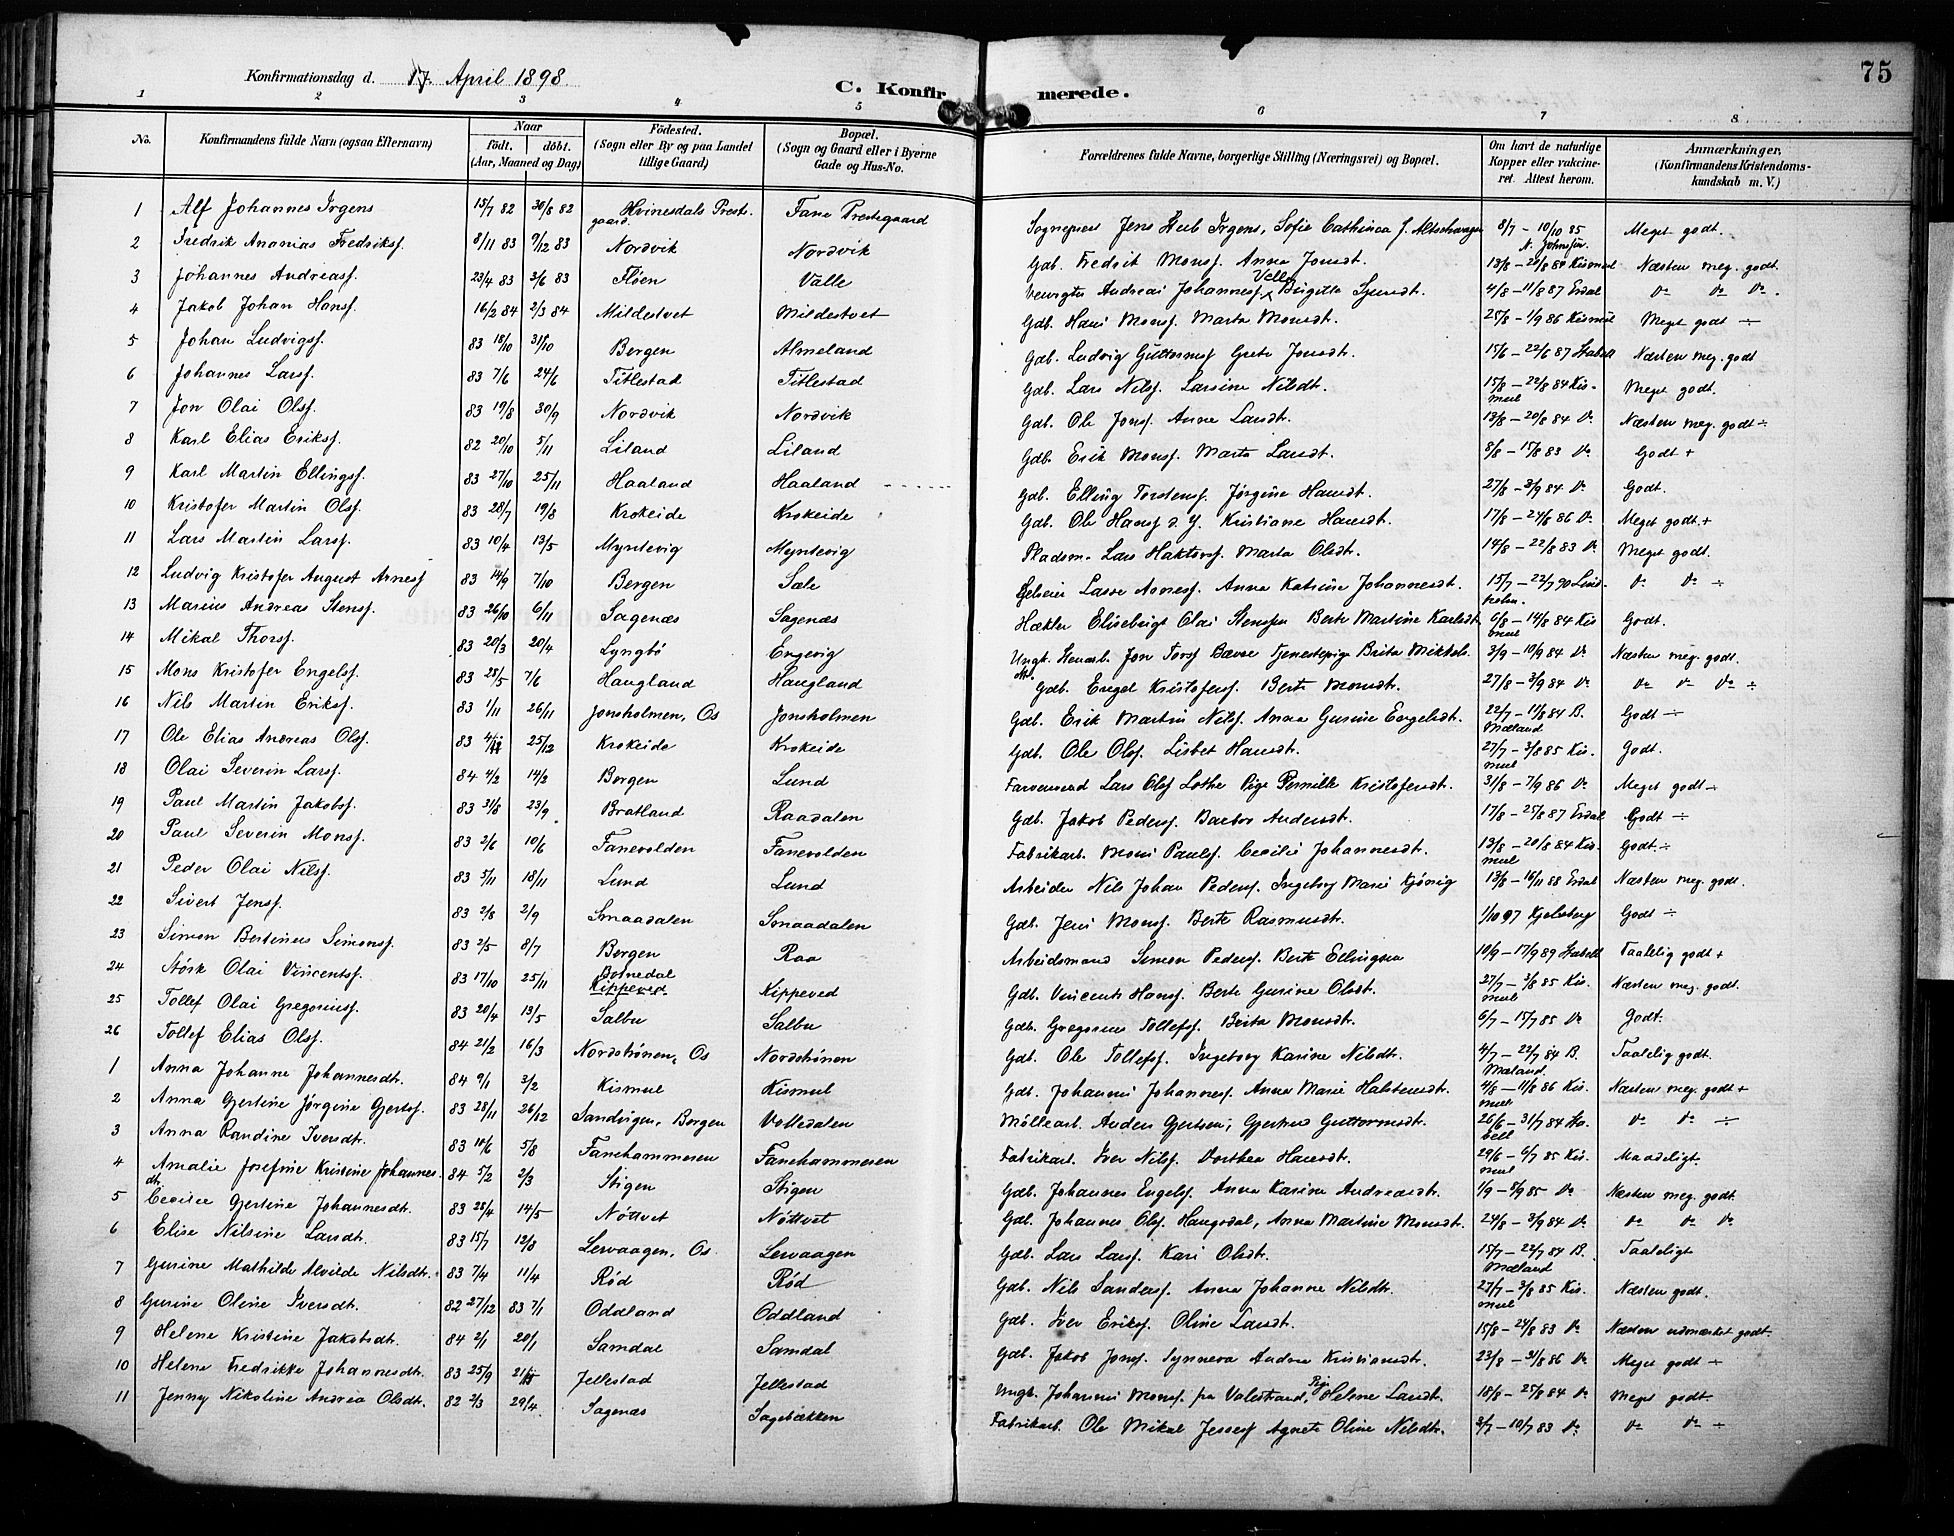 75
Konfirmationsdag d. 17 April 1898.
C. Konfirmerede.
1 2 3 4 5 6 7 8
No. Konfirmandens fulde Navn (ogsaa Efternavn) Naar født. døbt. (Aar, Maaned og Dag) Födested. (Sogn eller By og paa Landet tillige Gaard) Bopæl. (Sogn og Gaard eller i Byerne Gade og Hus-No. Forældrenes fulde Navne, borgerlige Stilling (Næringsvei) og Bopæl. Om havt de naturlige Kopper eller vakcineret. Attest herom. Anmærkninger, (Konfirmandens Kristendomskundskab m. V.)
1 Alf Johannes Irgens 15/7 82 30/8 82 Hvinesdals Prestgaard. Fane Prestegaard Sogneprest Jens Irgens, Sofie Cathinca 8/7 – 10/10 85 Meget godt.
2 Fredrik Ananias Fredriksf. 8/11 83 9/12 83 Nordvik Nordvik Gdb. Fredrik Monsf. Anna Jonsdt. 13/8 – 21/8 84 Kismul Næsten meg. godt.
3 Johannes Andreasf. 23/4 83 3/6 83 Fløen Valle Andreas Johannesf. Valle Birgitte Sjursdt. 4/8 – 11/8 87 Erdal Do Do Do.
4 Jakob Johan Hansf. 16/2 84 2/3 84 Mildestvet Mildestvet Gdb. Hans Monsf. Marta Monsdt. 25/8 – 1/9 86 Kismul Meget godt ÷
5 Johan Ludvigsf. 83 18/10 31/10 Bergen Almeland Gdb. Ludvig Guttormsf Grete Jonsdt. 15/6 – 22/6 87 Næsten meg. godt
6 Johannes Larsf. 83 7/6 24/6 Titlestad Titlestad Gdb. Lars Nilsf. Larsine Nilsdt. 15/8 – 22/8 84 Kismul Meget godt.
7 Jon Olai Olsf. 83 19/8 30/9 Nordvik Nordvik Gdb. Ole Jonsf. Anna Larsdt. 13/8 – 20/8 84 Do Næsten meg. godt ÷
8 Karl Elias Eriksf. 82 20/10 5/11 Liland Liland Gdb. Erik Monsf. Marta Larsdt. 8/8 – 15/8 83 Do Godt +
9 Karl Martin Ellingsf. 83 27/10 25/11 Haaland Haaland Gdb. Elling Torstensf. Jørgine Hansdt. 27/8 – 3/9 84 Do Godt.
10 Kristofer Martin Olsf. 83 28/7 19/8 Krokeide Krokeide Gdb. Ole Hansf d. y. Kristiane Hansdt. 17/8 – 24/8 86 Do Meget godt. +
11 Lars Martin Larsf. 83 10/4 13/5 Myntevig Myntevig Pladsm. Lars Haktorsf. Marta Olsdt. 14/8 – 22/8 83 Do Meget godt.
12 Ludvig Kristofer August Arnesf 83 14/9 7/10 Bergen Sæle Lasse Arnesf. Anna Katrine Johannesdt. 15/7 – 22/7 90 Lindholm. Do Do ÷
13 Marius Andreas Stensf. 83 26/10 6/11 Sagenæs Sagenæs Elisebrigt Olai Stensen Berte Martine Karlsdt 6/8 – 14/8 84 Kismul Godt.
14 Mikal Thorsf. 83 20/3 20/4 Lyngbö Engevig Ungk. Jon Torsf Tjenestepige Brita Mikkelsdt. 3/9 – 10/9 84 Do Næsten meg. godt.
15 Mons Kristofer Engelsf. 83 25/5 7/6 Haugland Haugland Gdb. Engel Kristofersf. Berte Monsdt. 27/8 – 3/9 84 Do Do Do Do ÷
16 Nils Martin Eriksf. 83 1/11 26/11 Jonsholmen, Os Jonsholmen Gdb. Erik Martin Nilsf. Anna Gurine Engelsdt. 22/7 – 11/8 84 B. Mæland Godt ÷
17 Ole Elias Andreas Olsf. 83 25/12 Krokeide Krokeide Gdb. Ole Olsf. Lisbet Hansdt. 27/7 – 3/8 85 Kismul Godt.
18 Olai Severin Larsf. 84 4/2 14/2 Bergen Lund Lars Olsf Lothe Pige Pernille Kristofersdt. 31/8 – 7/9 86 Do Meget godt ÷
19 Paul Martin Jakobsf. 83 31/8 23/9 Bratland Raadalen Gdb. Jakob Pedersf. Barbro Andersdt. 17/8 – 25/8 87 Erdal Godt ÷
20 Paul Severin Monsf. 83 2/6 10/6 Fanevolden Fanevolden Fabrikarb. Mons Paulsf. Cecilie Johannesdt. 13/8 – 20/8 84 Kismul Godt. ÷
21 Peder Olai Nilsf. 83 5/11 18/11 Lund Lund Arbeider Nils Johan Pedersf. Ingeborg Marie Kjönig 13/8 – 16/11 88 Erdal Næsten meg. godt.
22 Sivert Jensf. 83 2/8 2/9 Smaadalen Smaadalen Gdb. Jens Monsf. Berte Rasmusdt. 1/10 97 Kjelsberg Godt ÷
23 Simon Bertinus Simonsf. 83 2/5 8/7 Bergen Raa Arbeidsmand Simon Pedersf. Berte Ellingsen 10/9 – 17/9 89 Taalelig godt +
24 Störk Olai Vincentsf. 83 17/10 25/11 Birkedal Kippeved Kippeved Gdb. Vincents Hansf. Berte Gurine Olsdt. 27/7 – 3/8 85 Kismul Næsten meg. godt.
25 Tollef Olai Gregoriusf. 83 20/4 13/5 Salbu Salbu Gdb. Gregorius Tollefsf. Brita Monsdt. 6/7 – 15/7 85 Do Godt.
26 Tollef Elias Olsf. 84 21/2 16/3 Nordstrønen, Os Nordstrønen Gdb. Ole Tollefsf. Ingeborg Karine Nilsdt. 4/7 – 22/7 84 B. Mæland. Taalelig godt.
1 Anna Johanne Johannesdt. 84 9/1 3/2 Kismul Kismul Gdb. Johannes Johannesf. Anna Marie Halstensdt. 4/8 – 11/8 86 Kismul Næsten meg. godt +
2 Anna Gjertine Jörgine Gjertsf. 83 28/11 26/12 Sandvigen, Bergen Volledalen Möllearb. Anders Gjertsen, Gjertrud Guttormsdt. 26/6 – 31/7 84 Do Do ÷
3 Anna Randine Iversdt. 83 10/6 5/8 Fanehammeren Fanehammeren Fabrikarb. Iver Nilsf. Dorthea Hansdt. 29/6 – 6/7 85 Kismul Maadeligt.
4 Amalie Josefine Kristine Johannesdt. 84 5/2 2/3 Stigen Stigen Gdb. Johannes Engelsf. Anna Karine Andreasdt. 1/9 – 8/9 85 Do Næsten meg. godt
5 Cecilie Gjertine Johannesdt. 83 25/4 14/5 Nöttvet Nöttvet Gdb. Johannes Olsf. Haugsdal, Anna Martine Monsdt. 24/8 – 3/9 84 Do Do Do Do
6 Elise Nilsine Larsdt. 83 15/7 12/8 Lervaagen, Os. Lervaagen Gdb. Lars Larsf. Kari Olsdt. 15/7 – 22/7 84 B. Mæland Taaleligt
7 Gurine Mathilde Alvilde Nilsdt. 83 7/4 11/4 Rød Rød Gdb. Nils Sandersf. Anna Johanne Nilsdt. 27/7 – 3/8 85 Kismul Næsten godt.
8 Gurine Oline Iversdt. 82 27/12 83 7/1 Oddland Oddland Gdb. Iver Eriksf. Oline Larsdt. 15/8 – 24/8 83 Do Næsten udmærket godt
9 Helene Kristine Jakobsdt. 84 2/1 20/1 Samdal Samdal Gdb. Jakob Jonsf. Synneva Andrea Kristiansdt. 23/8 – 31/8 86 Do Meget godt ÷
10 Helene Fredrikke Johannesdt. 83 25/9 Jellestad Jellestad Ungk. Johannes Monsf. fra Valestrand, Pige Helene Larsdt. 18/8 – 25/8 84 Do Meget godt
11 Jenny Nikoline Andrea Olsdt. 82 2/3 29/4 Sagenæs Sagebækken Fabrikarb. Ole Mikal Jessesf Agnete Oline Nilsdt. 3/7 – 10/7 83 Do Do Do ÷